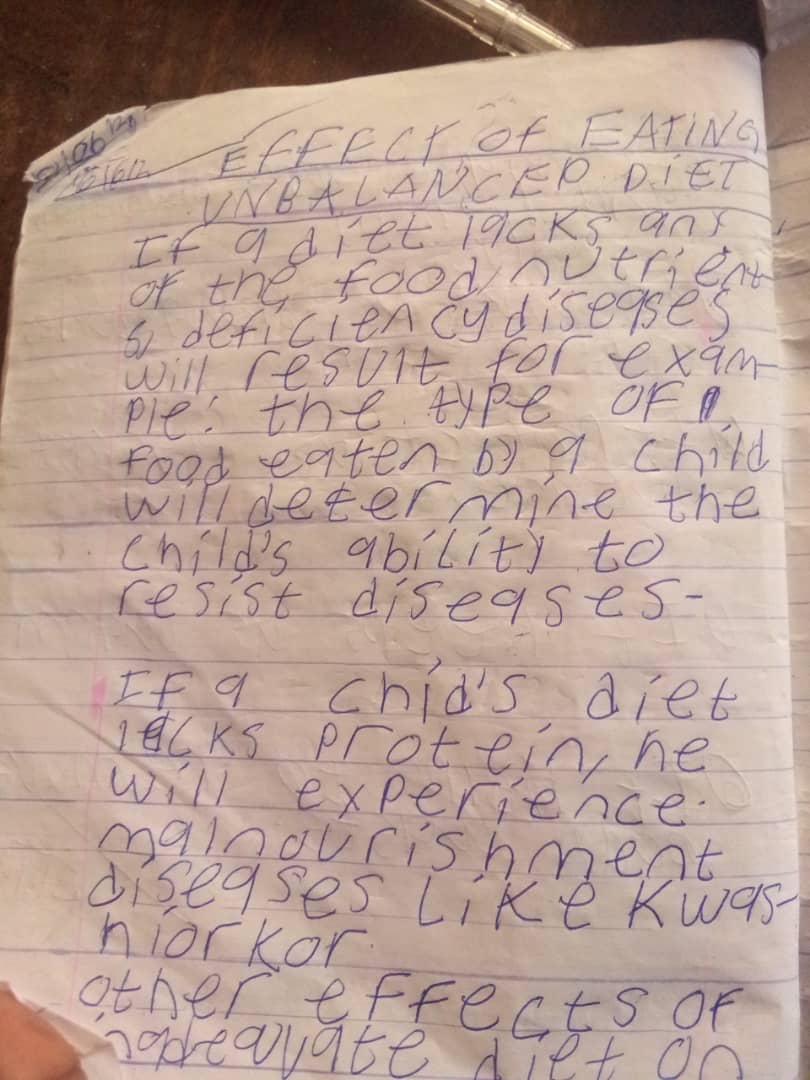 EFFECT OF EATING
UNBALANCED DIET
If a diet lacks any
of the food nutrient
s, deficiency diseases
will result for exam-
ple: the type of
food eaten by a child
will determine the
child's ability to
resist diseases-
If a chid's diet
lacks protein, he
will experience.
malnourishment
diseases like kwas-
hiorkor.
other effects of
diet on